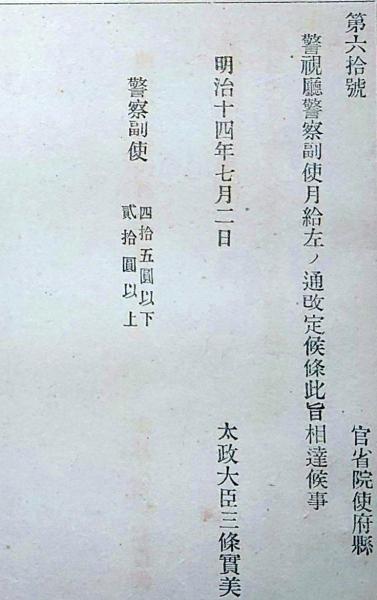 第六拾號
官省院使府縣
警視廳警察副使月給左ノ通改定候條此旨相達候事
明治十四年七月二日
太政大臣三條實美
警察副使
四拾五圓以下
貳拾圓以上